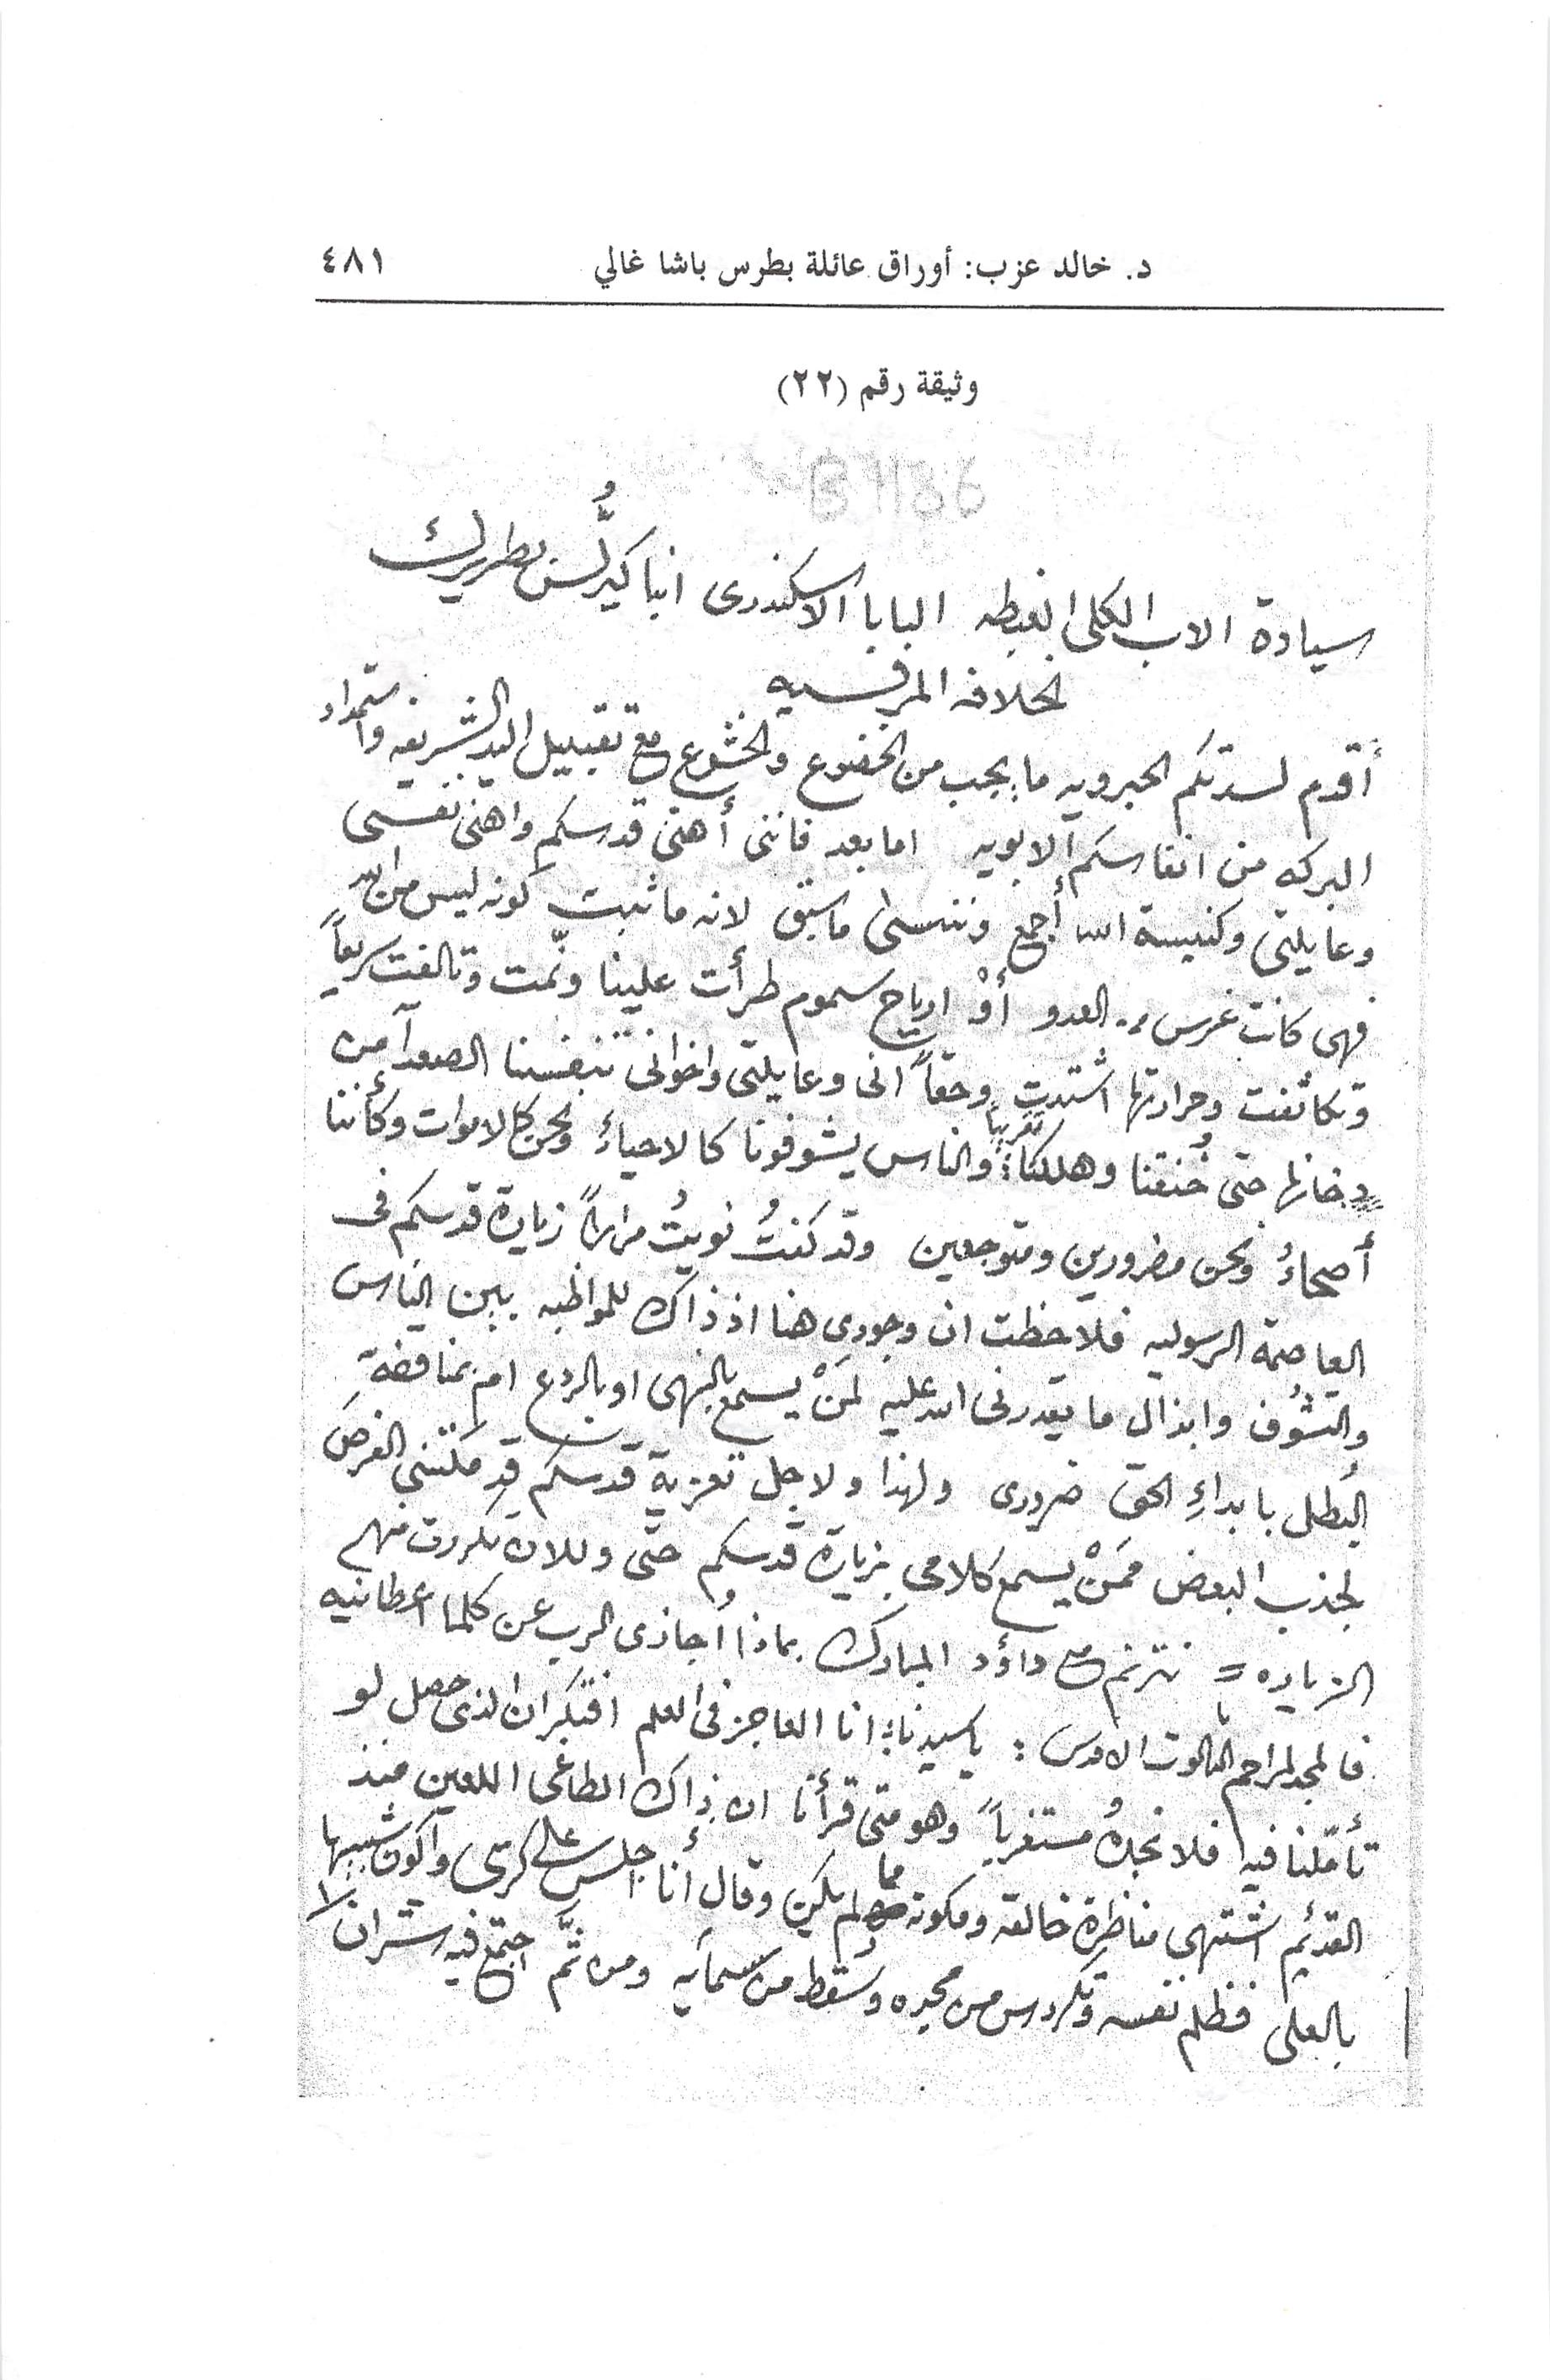 د. خالد عزب: أوراق عائلة بطرس باشا غالي ٤٨١
وثيقة رقم (٢٢)
سيادة الاب الكلى الغبطه البابا الاسكندرى انبا كيرلُّس بطريرك
الخلافه المرقسيه
أقدم لسدتكم الحبرويه ما يجب من الخضوع والخشوع مع تقبيل اليد الشريفه واستمداد
البركه من انفاسكم الابويه اما بعد فاننى أهنئ قدسكم واهنئ نفسى
وعايلتى وكنيسة الله أجمع وننسى ما سبق لانه ما ثبت كونه ليس من الله
فهى كانت غرس العدو أوْ ارياح سموم طرأت علينا ونمّت وتالفت سريعاً
وتكاثفت وحرارتها اشتدت وحقاً انى وعايلتى واخواتى تنفسنا الصعدآ من
دخانها حتى خُنقنا وهلكنا تقريباً والناس يشوفونا كالاحياء ونحن كالاموات وكأننا
أصحاءُ ونحن مضرورين ومتوجعين وقد كنتُ نويتُ مراراً زيارة قدسكم فى
العاصمة الرسوليه فلاحظت ان وجودى هنا اذ ذاك للمواظبه بين الناس
والتشوُف وابذال ما يقدرنى الله عليه لمَنْ يسمع بالنهى او بالردع ام بمناقضة
البُطل بابداءِ الحق ضرورى ولهذا ولاجل تعزية قدسكم قد مكنتنى الفرصَ
لجذب البعض ممَنْ يسمع كلامى بزيارة قدسكم حتى وللان تكررت منهم
الزياره = نترنم مع داؤد المبارك بماذا أُجازى الرب عن كلما اعطانيه
فالمجد لمراحم الثالوت الاقدس : يا سيدنا انا العاجز فى العلم افتكر ان الذى حصل لو
تأمّلنا فيه فلا نجدهُ مستغرباً وهو متى قرأنا ان ذاك الطاغى اللعين منذ
القدئيم اشتهى مناظرة خالقه ومكونه مما لم يكن وقال أنا أجلس على كرسى واكون شبيها
بالعلى فظلم نفسه وتكردس من مجده وسُقط من سمآيه ومن ثَّم اجتمع فيه شران